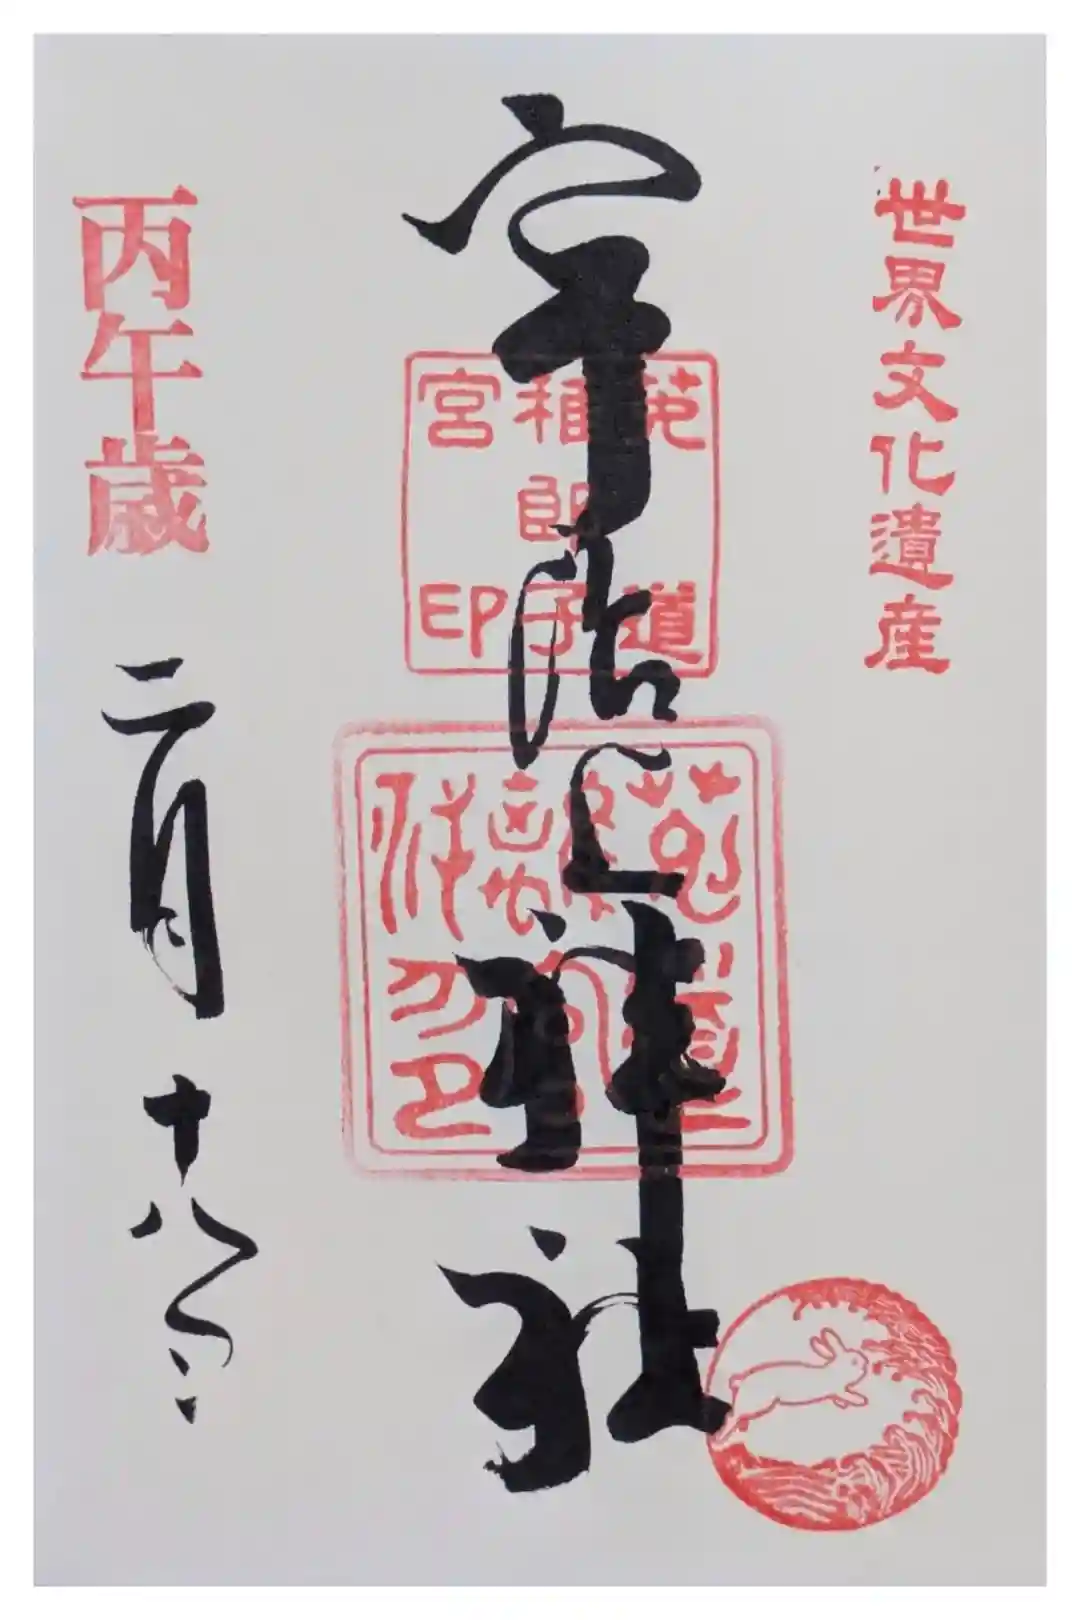 世界文化遺産
宇治神社
菟道
稚郎子
宮印
丙午歳
二月十八日